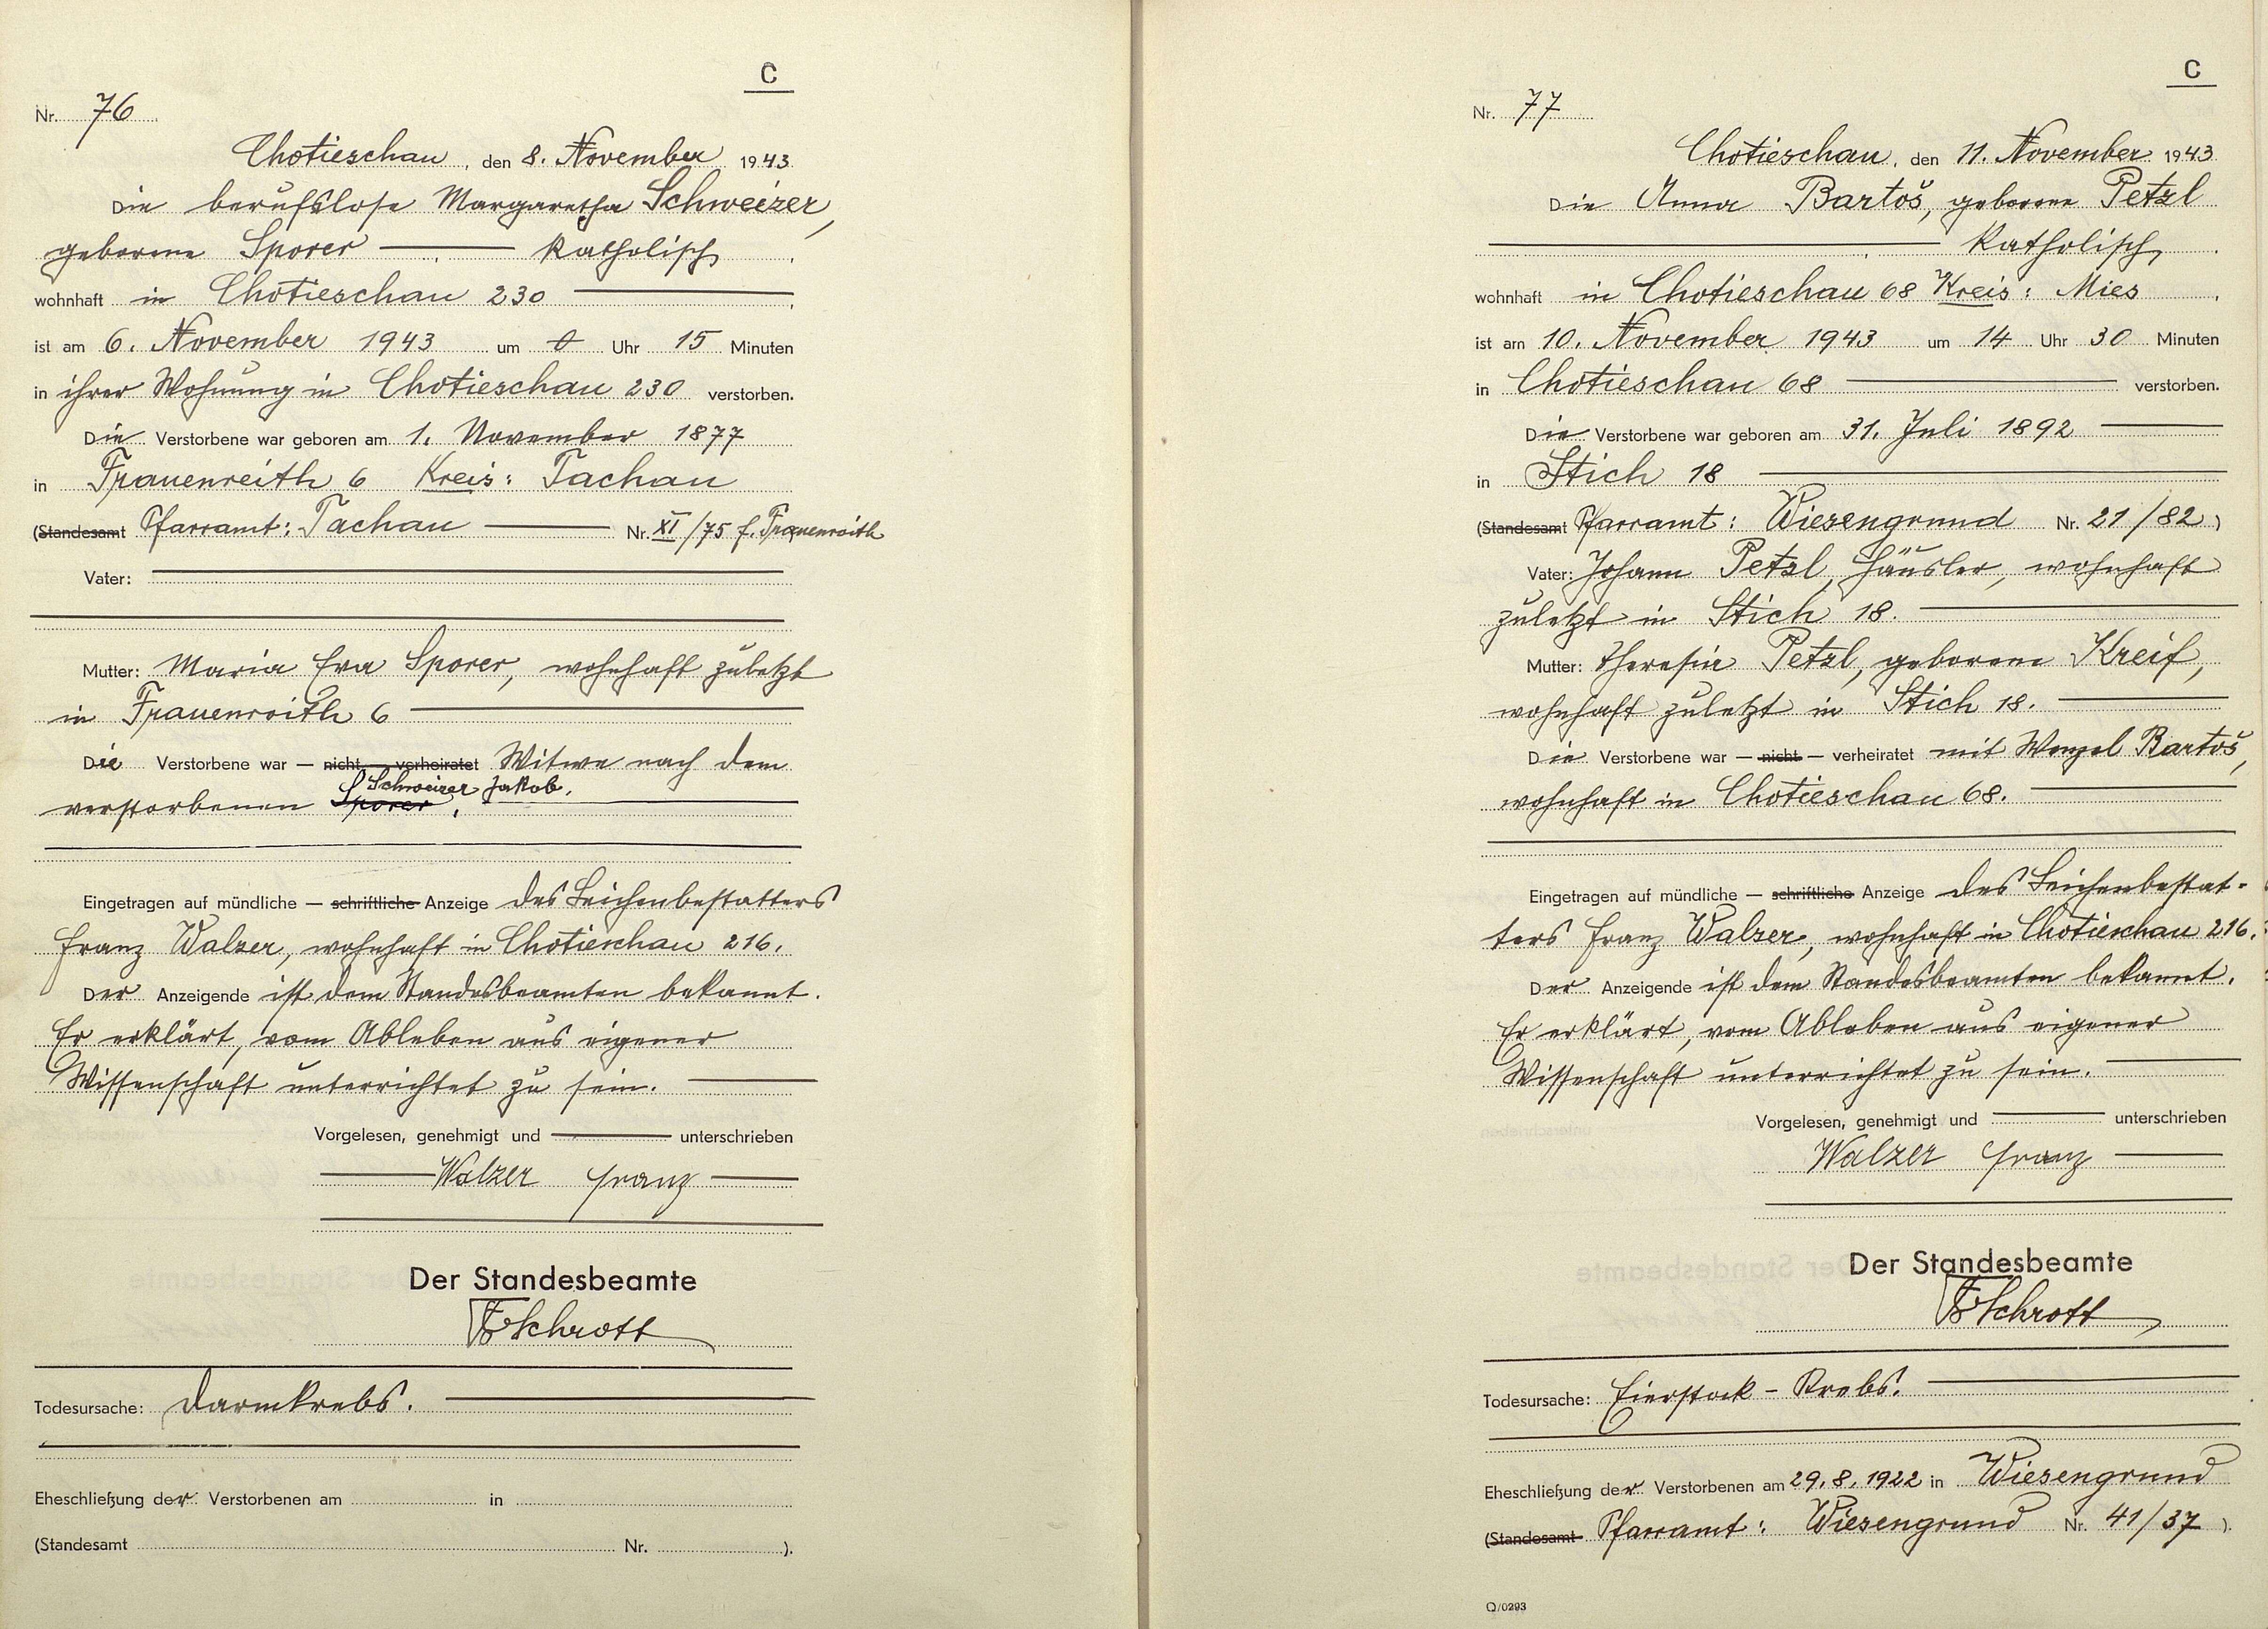 C
Nr. 76
Chotieschau, den 8. November 1943
Die berufslose Margaretha Schweizer,
geborene Sporer — katholisch.
wohnhaft in Chotieschau 230 —
ist am 6. November 1943 um 0 Uhr 15 Minuten
in ihrer Wohnung in Chotieschau 230 verstorben.
Die Verstorbene war geboren am 1. November 1877
in Frauenreith 6 Kreis: Tachau
(Standesamt Pfarramt: Tachau — Nr. XI/75 f. Frauenreith
Vater: —
Mutter: Maria Eva Sporer, wohnhaft zuletzt
in Frauenreith 6 —
Die Verstorbene war — nicht — verheiratet Witwe nach dem
verstorbenen Sporer, Schweizer Jakob.
Eingetragen auf mündliche — schriftliche Anzeige des Leichenbestatters
Franz Walzer, wohnhaft in Chotieschau 216.
Der Anzeigende ist dem Standesbeamten bekannt.
Er erklärt, vom Ableben aus eigener
Wissenschaft unterrichtet zu sein. —
Vorgelesen, genehmigt und — unterschrieben
— Walzer Franz —
Der Standesbeamte
Schrott
Todesursache: Darmkrebs. —
Eheschließung der Verstorbenen am in
(Standesamt Nr. ).
C
Nr. 77
Chotieschau, den 11. November 1943
Die Anna Bartoš, geborene Petzl
— katholisch.
wohnhaft in Chotieschau 68 Kreis: Mies.
ist am 10. November 1943 um 14 Uhr 30 Minuten
in Chotieschau 68 — verstorben.
Die Verstorbene war geboren am 31. Juli 1892 —
in Stich 18 —
(Standesamt Pfarramt: Wiesengrund Nr. 21/82)
Vater: Johann Petzl, Häusler, wohnhaft
zuletzt in Stich 18. —
Mutter: Theresia Petzl, geborene Kreif,
wohnhaft zuletzt in Stich 18. —
Die Verstorbene war — nicht — verheiratet mit Wenzel Bartoš,
wohnhaft in Chotieschau 68. —
Eingetragen auf mündliche — schriftliche Anzeige des Leichenbestat-
ters Franz Walzer, wohnhaft in Chotieschau 216.
Der Anzeigende ist dem Standesbeamten bekannt.
Er erklärt, vom Ableben aus eigener
Wissenschaft unterrichtet zu sein. —
Vorgelesen, genehmigt und — unterschrieben
Walzer Franz —
Der Standesbeamte
Schrott
Todesursache: Eierstock-Krebs. —
Eheschließung der Verstorbenen am 29.8.1922 in Wiesengrund
(Standesamt Pfarramt: Wiesengrund Nr. 41/37 ).
Q/0293